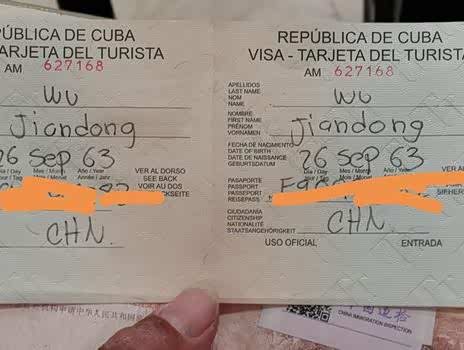 PÚBLICA DE CUBA
TARJETA DEL TURISTA
AM 627168
Wu
Jiandong
26 Sep 63
Día / Day Mes / Month Año / Year
VER AL DORSO
SEE BACK
VOIR AU DOS
CKSEITE
CHN.
REPÚBLICA DE CUBA
VISA - TARJETA DEL TURISTA
AM 627168
APELLIDOS
LAST NAME
NOM
NAME
Wu
NOMBRE
FIRST NAME
PRÉNOM
VORNAMEN
Jiandong
FECHA DE NACIMIENTO
DATE OF BIRTH
DATE DE NAISSANCE
GEBURTSDATUM
26 Sep 63
Día / Day Mes / Month Año / Year
PASAPORTE
PASSPORT
PASSEPORT
REISEPASS
VER A
SIEHE R
CIUDADANÍA
CITIZENSHIP
NATIONALITÉ
STAATSANGEHÖRIGKEIT
CHN.
USO OFICIAL ENTRADA
中华人民共和国
CHINA IMMIGRATION INSPECTION